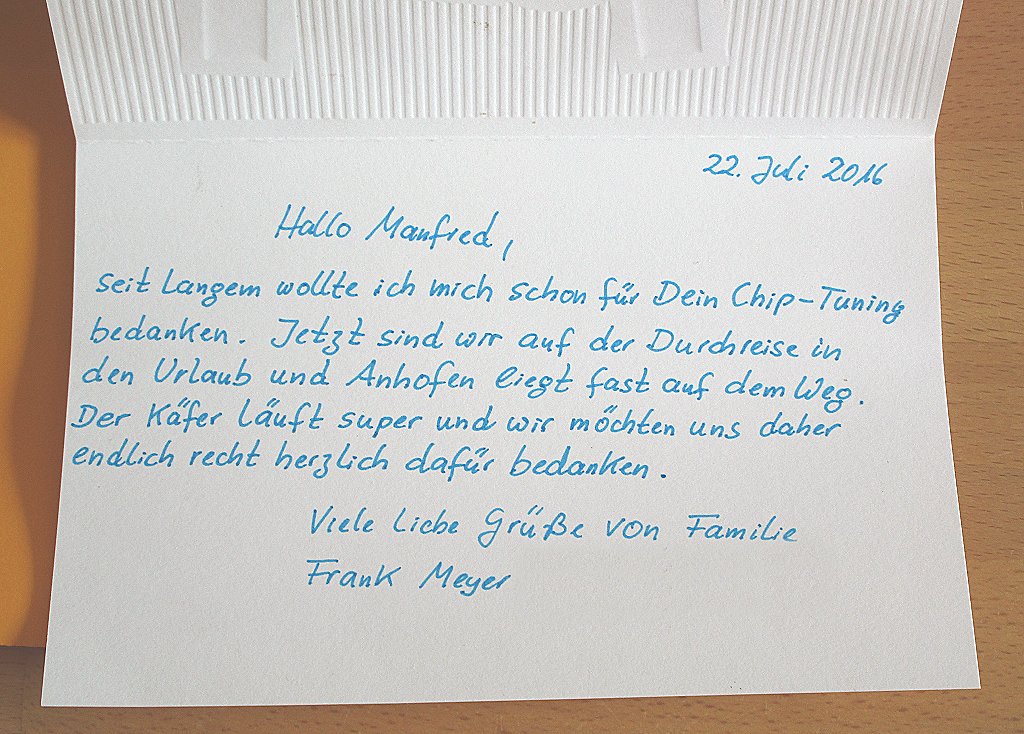 22. Juli 2016
Hallo Manfred,
seit Langem wollte ich mich schon für Dein Chip-Tuning
bedanken. Jetzt sind wir auf der Durchreise in
den Urlaub und Anhofen liegt fast auf dem Weg.
Der Käfer läuft super und wir möchten uns daher
endlich recht herzlich dafür bedanken.
Viele liebe Grüße von Familie
Frank Meyer